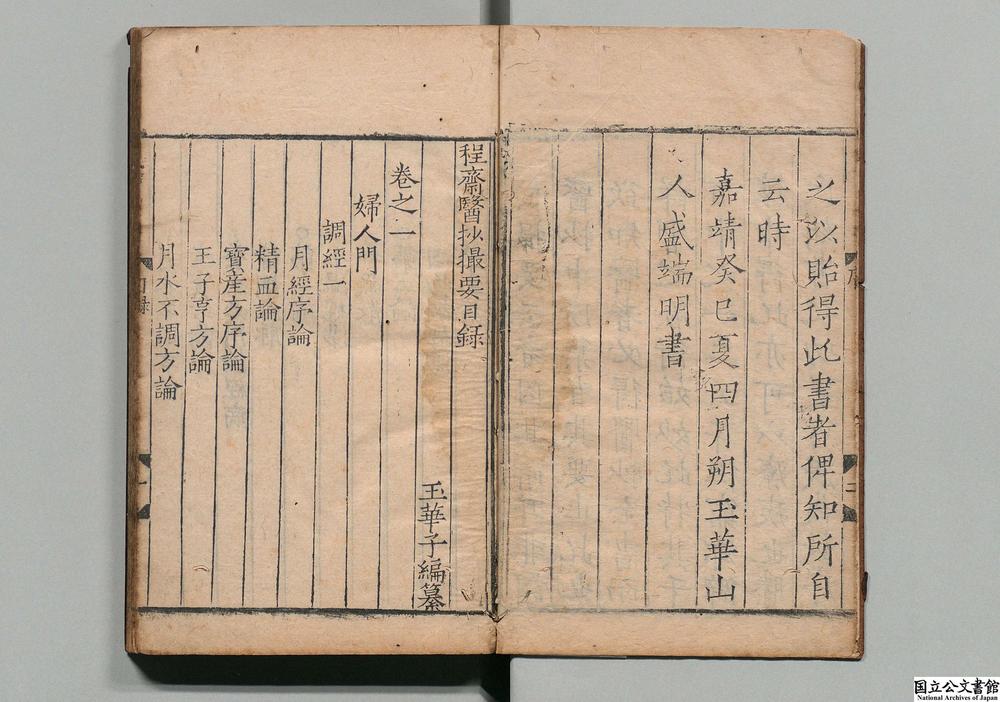 之以貽得此書者俾知所自
云時
嘉靖癸巳夏四月朔玉華山
人盛端明書
序
二
程齋醫抄撮要目録
玉華子編纂
卷之一
婦人門
調經一
月經序論
精血論
寶産方序論
王子亨方論
月水不調方論
目録
一
国立公文書館
National Archives of Japan